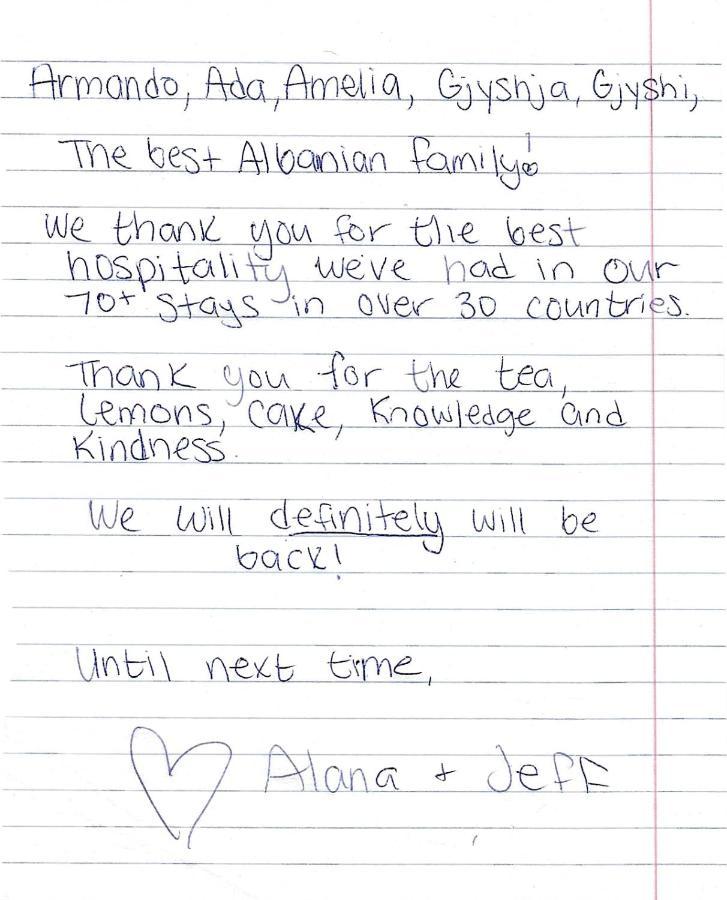 Armando, Ada, Amelia, Gjyshja, Gjyshi,
The best Albanian family!
We thank you for the best
hospitality we've had in our
70+ stays in over 30 countries.
Thank you for the tea,
lemons, cake, knowledge and
kindness.
We will definitely will be
back!
Until next time,
♡ Alana + Jeff